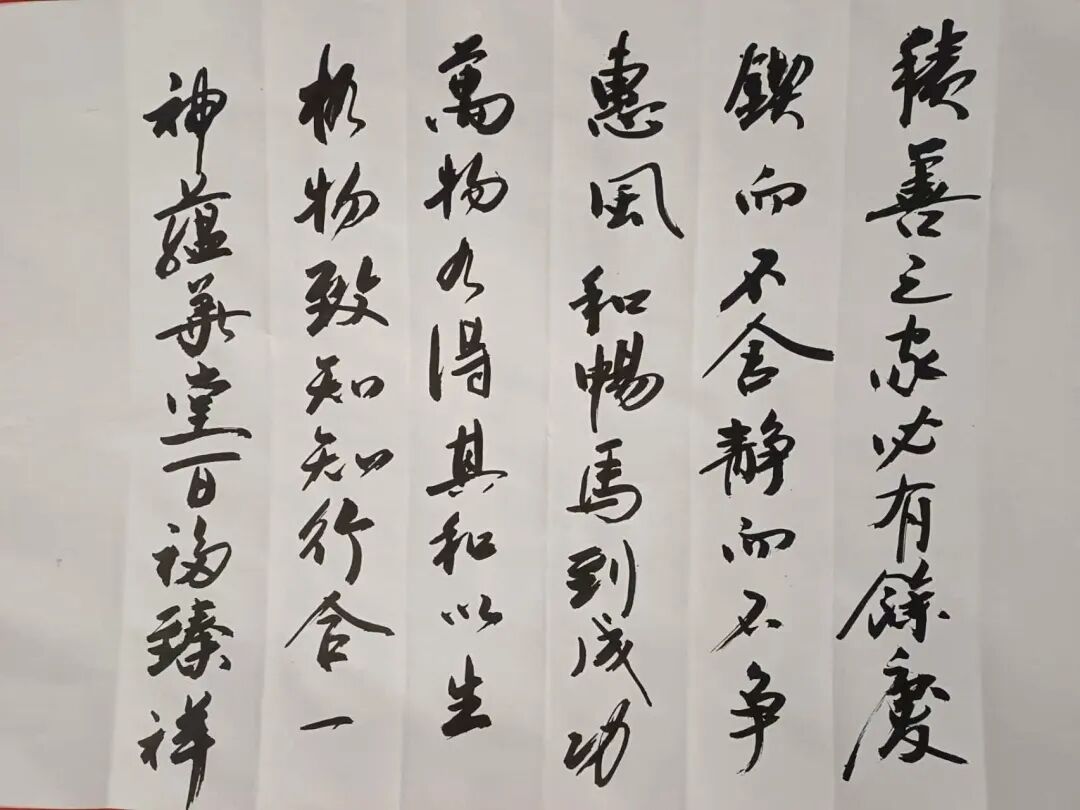 積善之家必有餘慶
鍥而不舍静而不争
惠風和暢馬到成功
萬物各得其和以生
格物致知知行合一
神蘊華堂百福臻祥